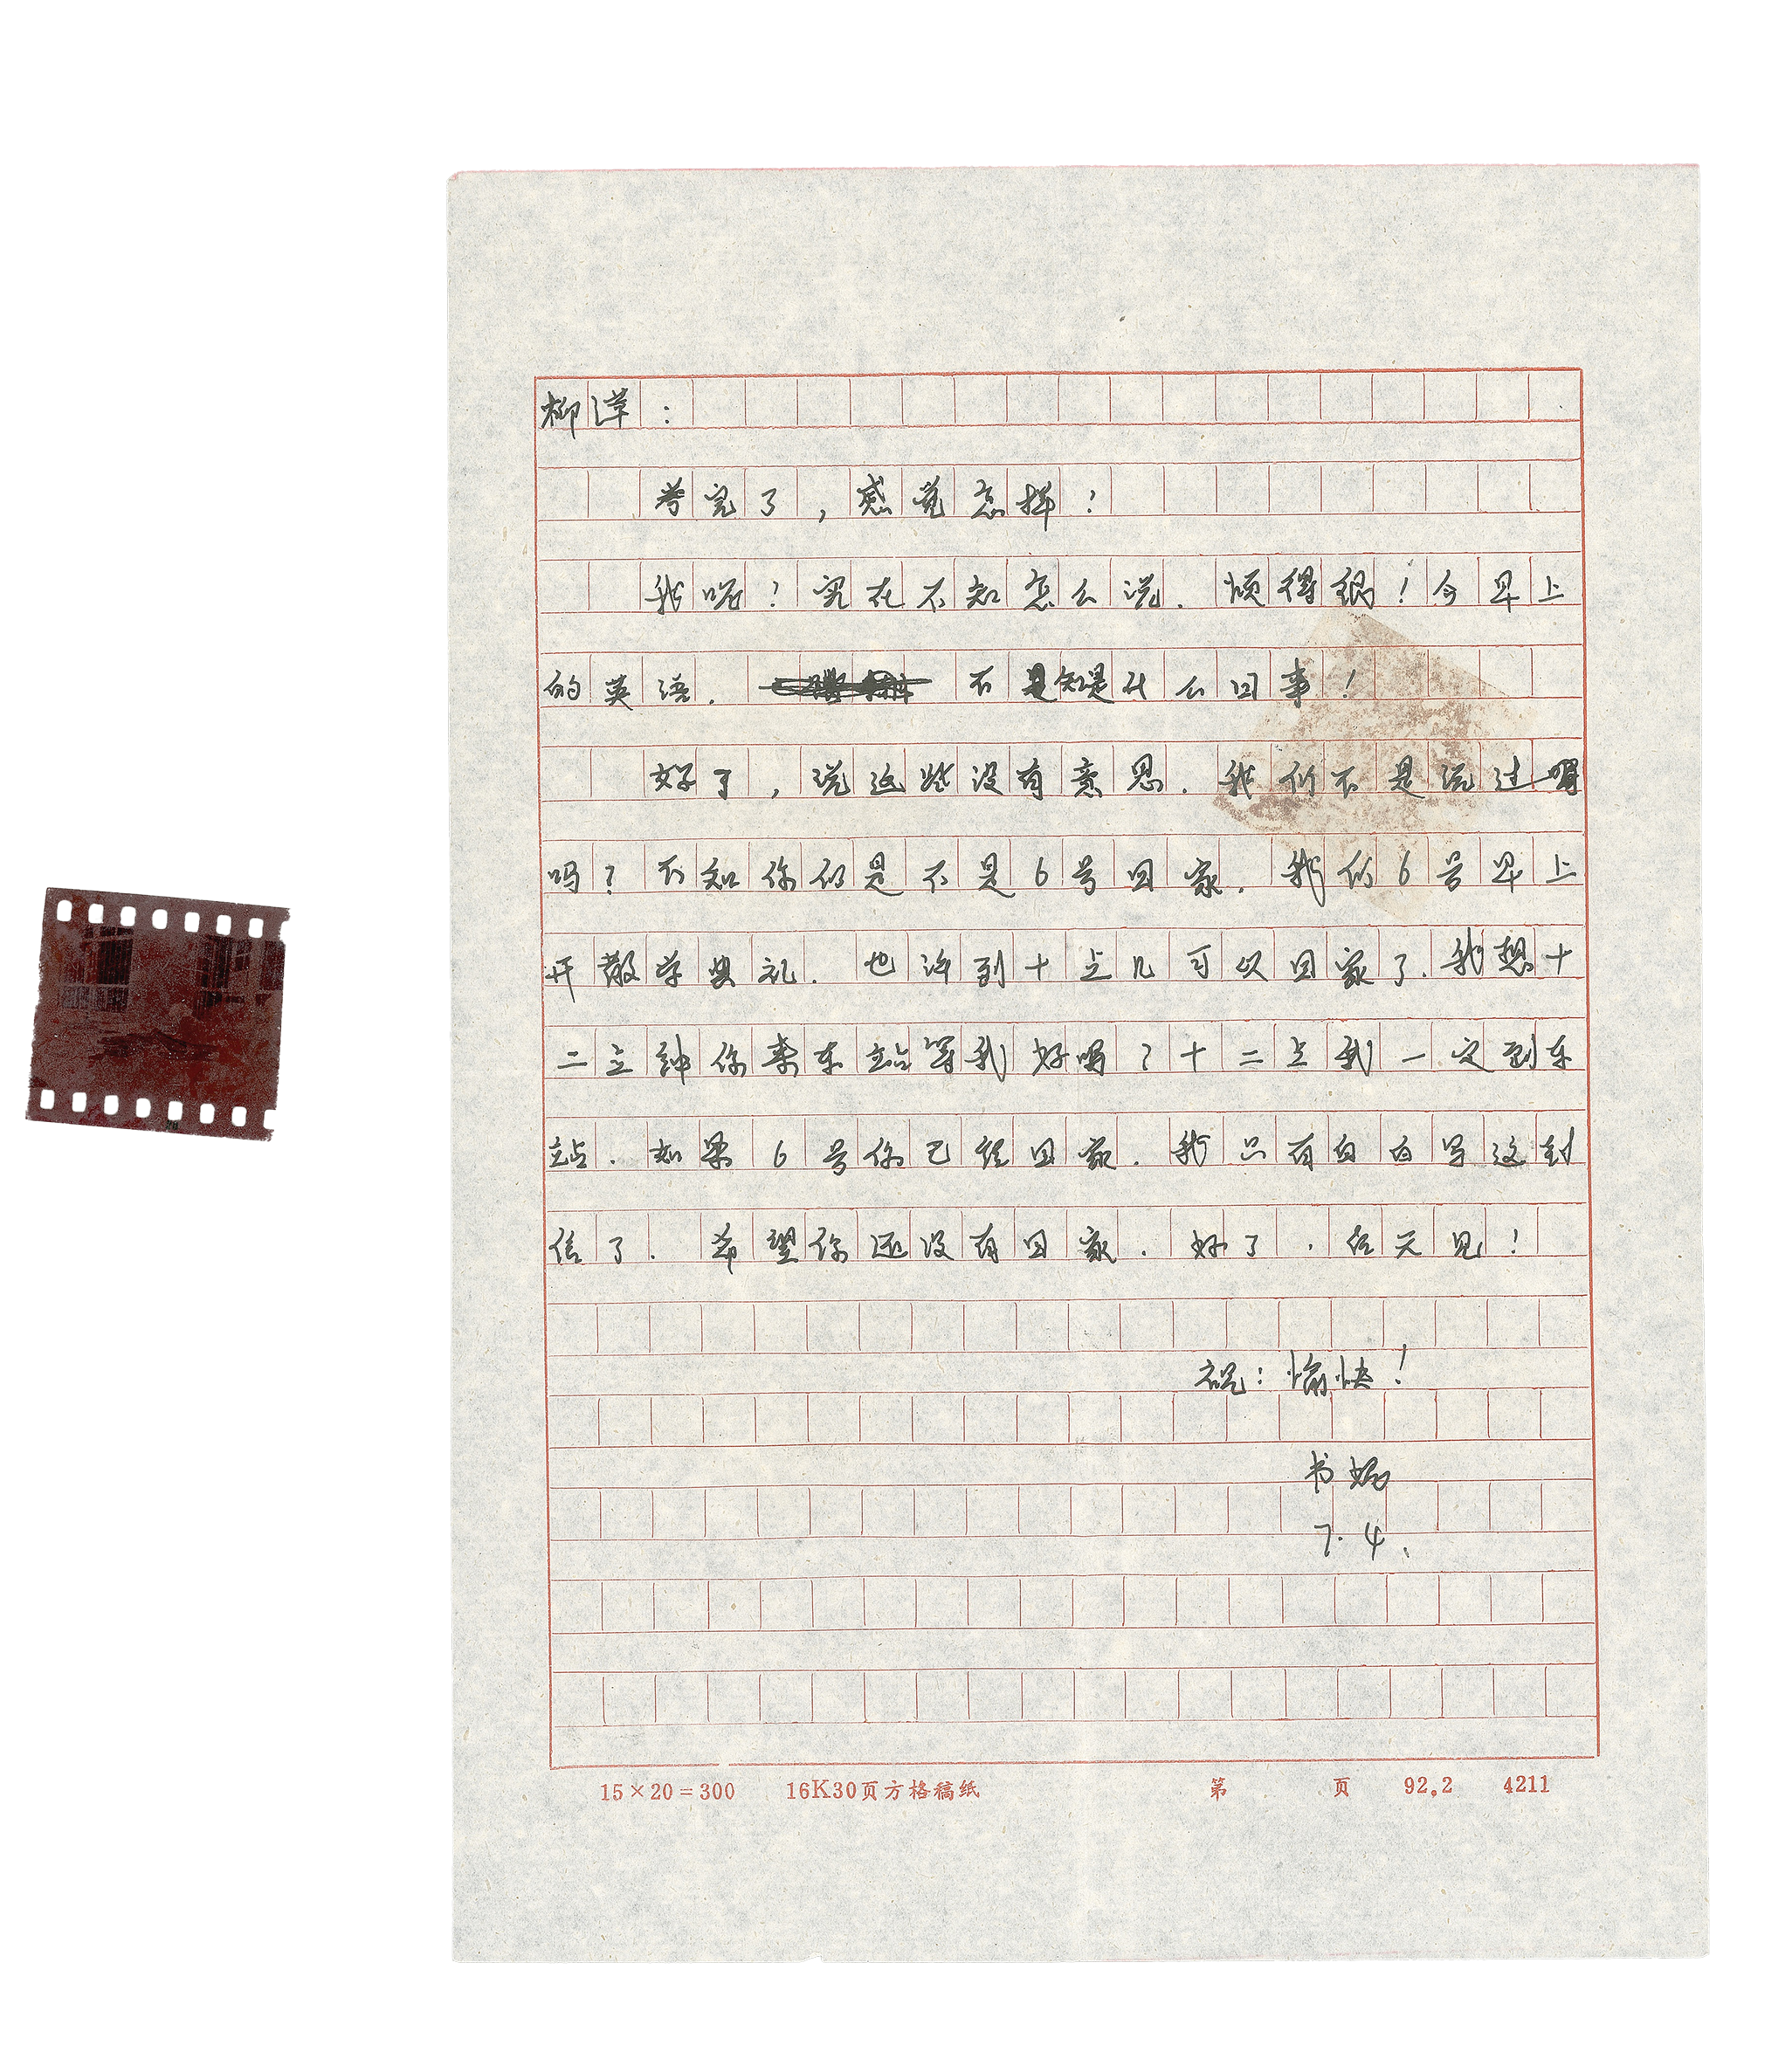 柳萍：
考完了，感觉怎样！
我呢？实在不知怎么说．烦得很！今早上
的英语．不是知是什么回事！
好了，说这些没有意思．我们不是说过
吗？不知你们是不是6号回家．我们6号早上
开散学典礼．也许到十点几可以回家了．我想十
二点钟你来车站等我好吗？十二点我一定到车
站．如果6号你已经回家．我只有白白写这封
信了．希望你还没有回家．好了．后天见！
祝：愉快！
书
7.4．
15×20=300 16K30页方格稿纸 第 页 92.2 4211